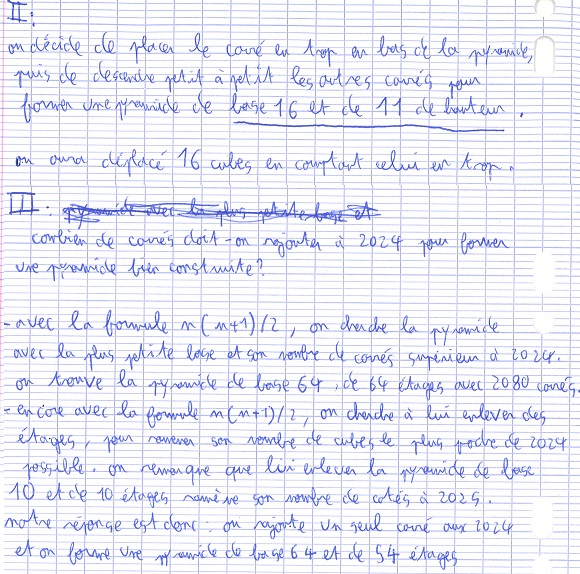 II:
on décide de placer le carré en trop en bas de la pyramide,
puis de descendre petit à petit les autres carrés pour
former une pyramide de base 16 et de 11 de hauteur.
on aura déplacé 16 cubes en comptant celui en trop.
III: pyramide avec la plus petite base et
combien de carrés doit-on rajouter à 2024 pour former
une pyramide bien construite?
- avec la formule n(n+1)/2, on cherche la pyramide
avec la plus petite base et son nombre de carrés supérieur à 2024.
on trouve la pyramide de base 64, de 64 étages avec 2080 carrés.
- encore avec la formule n(n+1)/2, on cherche à lui enlever des
étages, pour ramener son nombre de cubes le plus proche de 2024
possible. on remarque que lui enlever la pyramide de base
10 et de 10 étages ramène son nombre de cotés à 2025.
notre réponse est donc: on rajoute un seul carré aux 2024
et on forme une pyramide de base 64 et de 54 étages